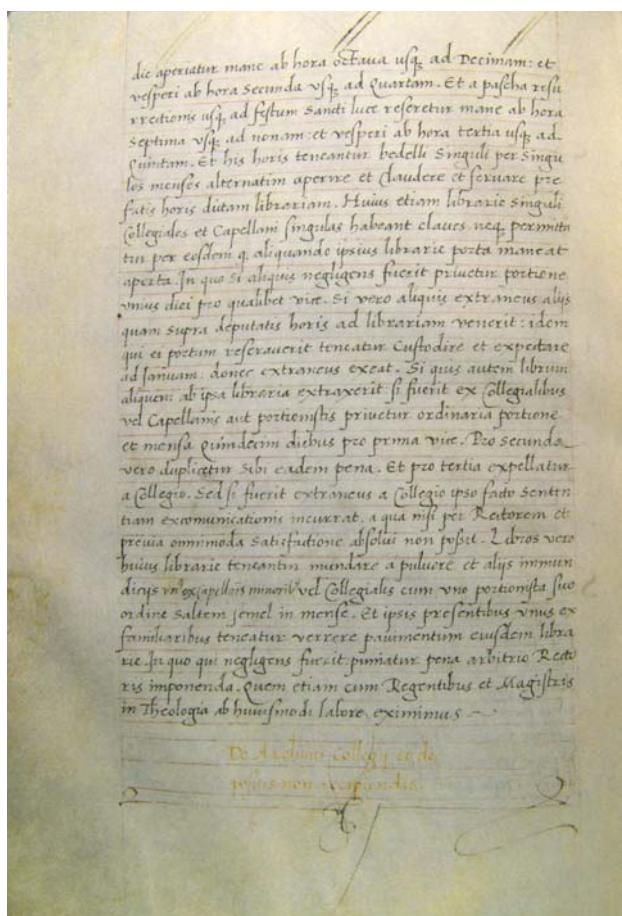 die aperiatur mane ab hora octaua usq; ad Decimam: et
vesperi ab hora Secunda vsq; ad Quartam. Et a pascha resu
rrectionis usq; ad festum Sancti luce reseretur mane ab hora
Septima vsq; ad nonam: et vesperi ab hora tertia usq; ad
Quintam. Et his horis teneantur bedelli Singuli per Singu
los menses alternatim aperire et Claudere et seruare pre
fatis horis dictam librariam. Huius etiam librarie Singuli
Collegiales et Capellani singulas habeant claues neq; permitta
tur per eosdem q. aliquando ipsius librarie porta maneat
aperta. In quo Si aliquis negligens fuerit priuetur portione
vnius diei pro qualibet vice. Si vero aliquis extraneus alijs
quam Supra deputatis horis ad librariam venerit: idem
qui ei portam reserauerit teneatur Custodire et expectare
ad Januam: donec extraneus exeat. Si quis autem librum
aliquem: ab ipsa libraria extraxerit: si fuerit ex Collegialibus
vel Capellanis aut portionistis priuetur ordinaria portione
et mensa Quindecim diebus pro prima vice. Pro secunda
vero duplicetur Sibi eadem pena. Et pro tertia expellatur
a Collegio. Sed si fuerit extraneus a Collegio ipso facto Senten
tiam excomunicationis incurrat, a qua nisi per Rectorem et
preuia omnimoda Satisfactione absolui non possit. Libros vero
huius librarie teneantur mundare a puluere et alijs immun
dicijs vn⁹ ex capellanis minorib⁹ vel Collegiales cum vno portionista suo
ordine Saltem semel in mense. Et ipsis presentibus vnus ex
familiaribus teneatur verrere pauimentum eiusdem libra
rie. In quo qui negligens fuerit: puniatur pena arbitrio Recto
ris imponenda. Quem etiam cum Regentibus et Magistris
in Theologia ab huiusmodi labore eximimus
De Collegij et de
non